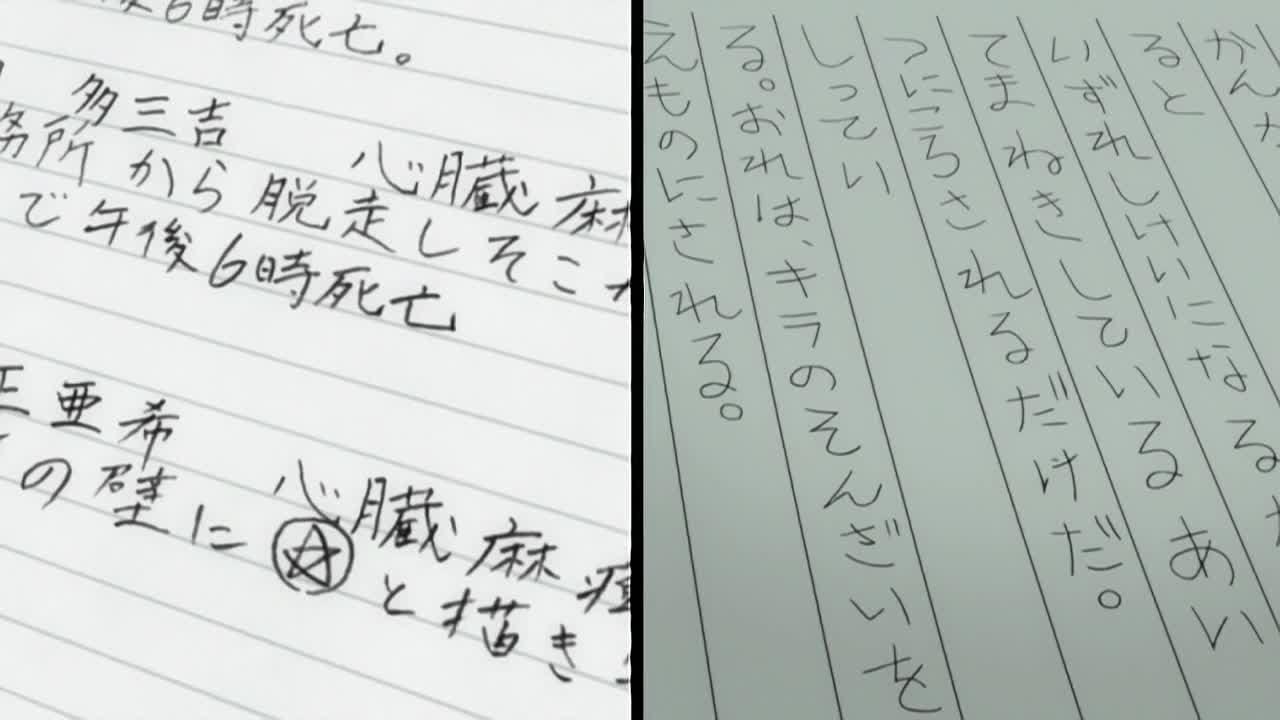 6時死亡。
多三吉 心臓麻
務所から脱走しそこ
で午後6時死亡
亜希 心臓麻痺
の壁に☆と描き
かん
ると
いずれしけいになる
てまねきしているあい
つにころされるだけだ。
しってい
る。おれは、キラのそんざいを
えものにされる。